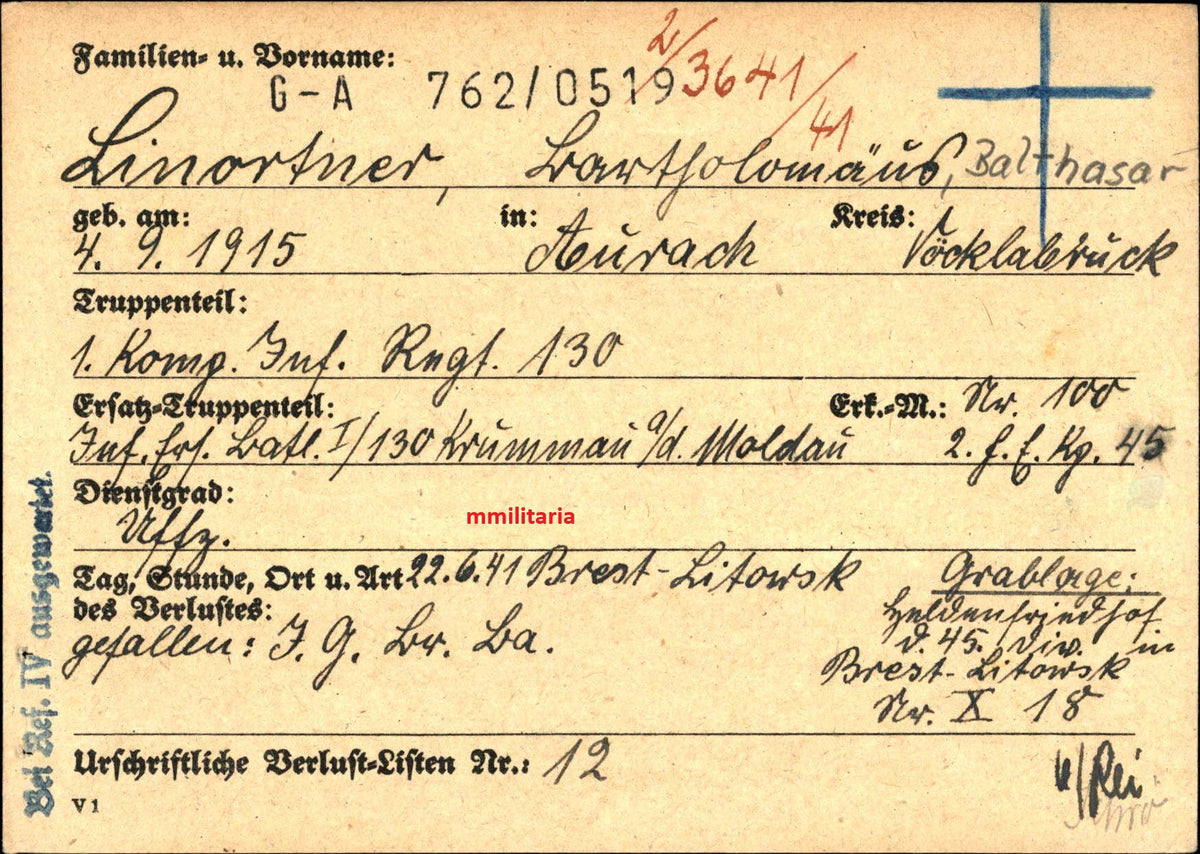 Familien- u. Vorname:
G-A 762/0519 2/3641/41
Linortner, Bartholomäus, Balthasar
geb. am: in: Kreis:
4. 9. 1915 Aurach Vöcklabruck
Truppenteil:
1. Komp. Inf. Regt. 130
Ersatz-Truppenteil: Erk.-M.: Nr. 100
Inf. Ers. Batl. I/130 Krummau a/d. Moldau 2. f. E. Kp. 45
Dienstgrad:
Uffz.
mmilitaria
Tag, Stunde, Ort u. Art 22.6.41 Brest-Litowsk
des Verlustes:
gefallen: I. G. Br. Ba.
Grablage:
Heldenfriedhof
d. 45. Div. in
Brest-Litowsk
Nr. X 18
Urschriftliche Verlust-Listen Nr.: 12
V 1
Bei Ref. IV ausgewertet.